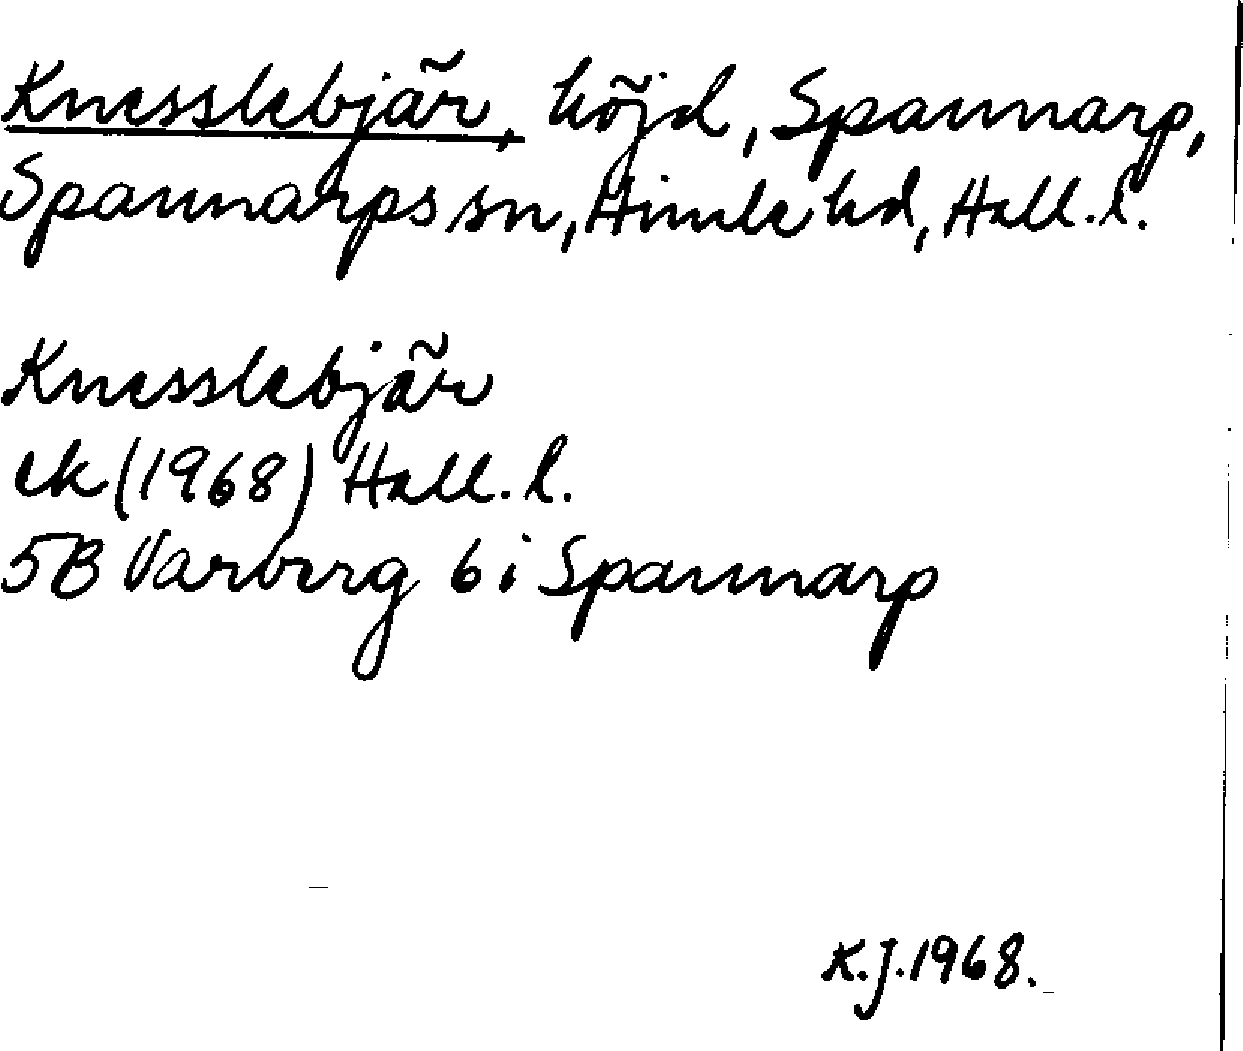 Knesslebjär, höjd, Spannarp,
Spannarps sn, Himle hd, Hall. l.
Knesslebjär
ek (1968) Hall. l.
5B Varberg 6 i Spannarp
K.J. 1968.